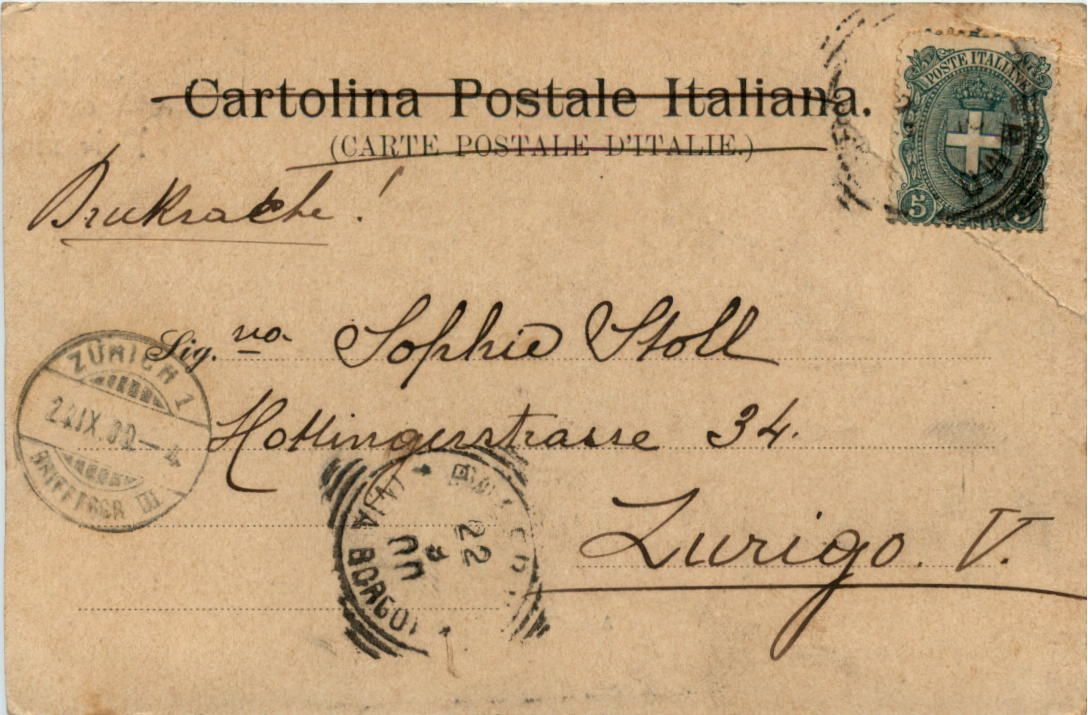 Cartolina Postale Italiana.
(CARTE POSTALE D'ITALIE.)
POSTE ITALIANE
5
Druksache!
Sig.na Sophie Stoll
Hottingerstrasse 34.
Zurigo. V.
ZÜRICH 1
BRIEFTRÄGER III
22
BORGO